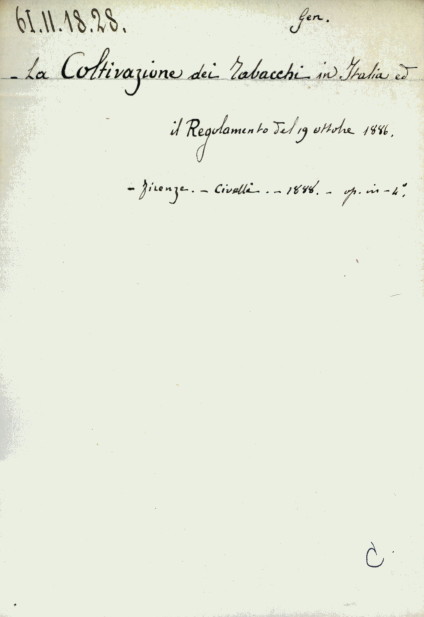 61.II.18.28.
Gen.
- La Coltivazione dei Tabacchi in Italia ed
il Regolamento del 19 ottobre 1886.
- Firenze. - Civelli. - 1888. - op. in-4°.
C.